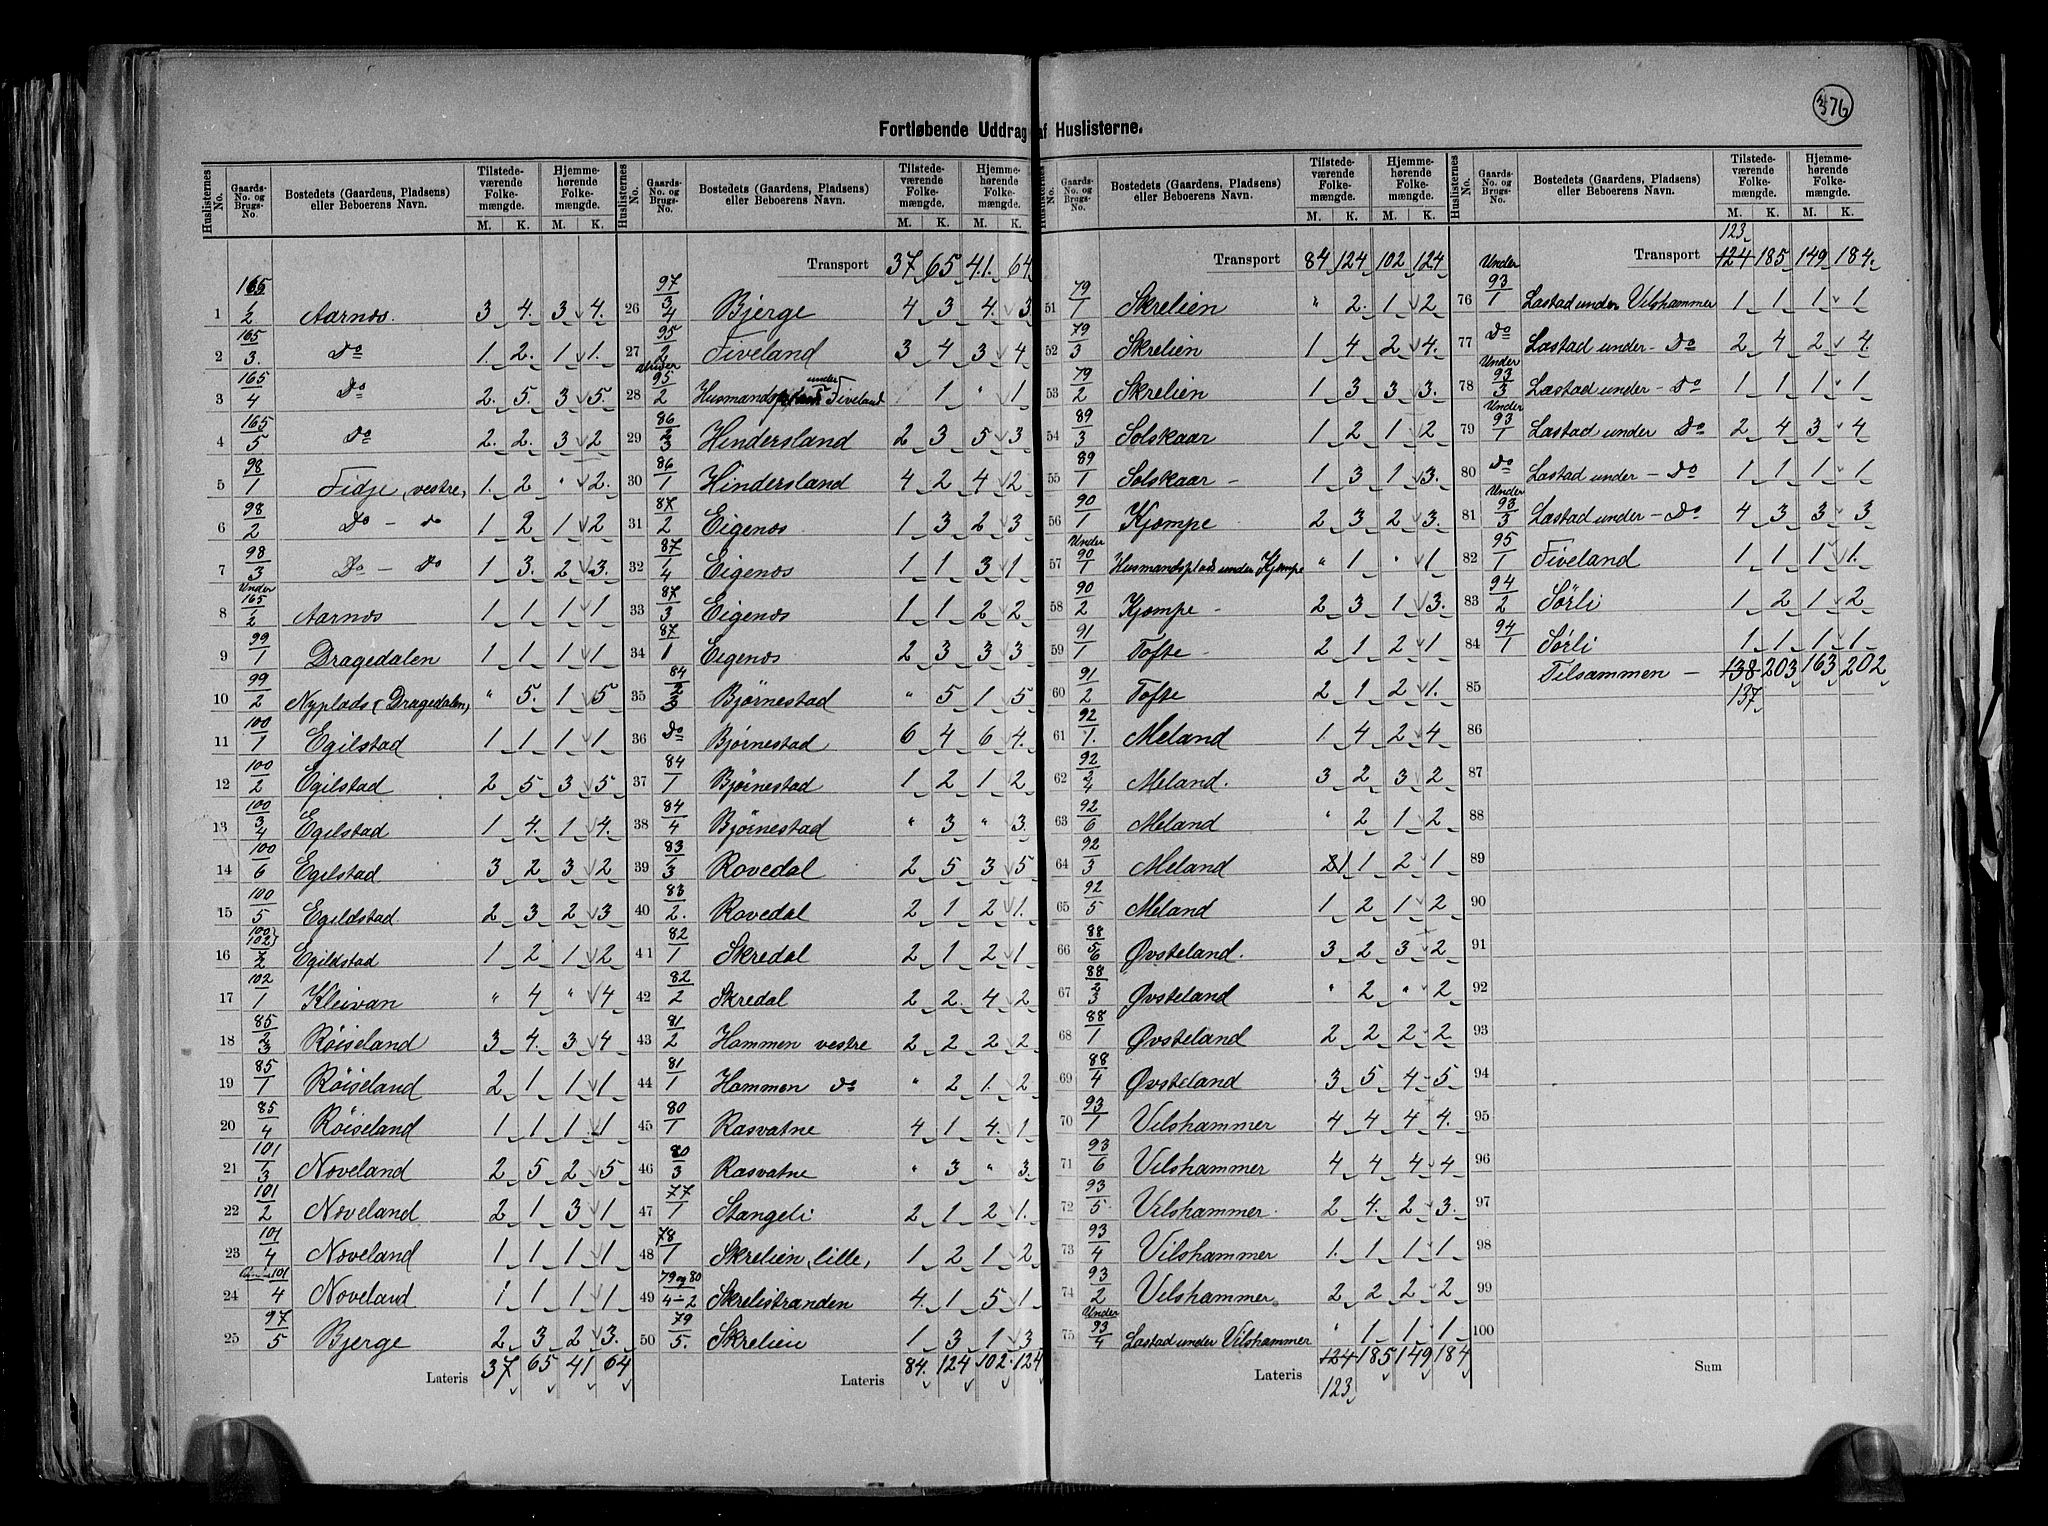 376
Fortløbende Uddrag af Huslisterne.
Huslisternes No. Gaards-No. og Brugs-No. Bostedets (Gaardens, Pladsens) eller Beboerens Navn. Tilstedeværende Folkemængde. Hjemmehørende Folkemængde.
M. K. M. K.
1 165/2 Aarnes. 3 4. 3 4.
2 165/3. Do 1. 2. 1 1.
3 165/4 Do 2. 5. 3 5.
4 165/5 Do 2. 2. 3 2
5 98/1 Fidje, vestre, 1. 2 " 2.
6 98/2 Do - do 1 2 1 2
7 98/3 Do - do 1 3. 2 3.
8 Under 165/2 Aarnes 1 1 1 1
9 99/1 Dragedalen 1 1 1 1
10 99/2 Nyplads (Dragedalen) " 5. 1 5
11 100/1 Egilstad 1 1 1 1
12 100/2 Egilstad 2 5 3 5
13 100/3 4 Egilstad 1 4. 1 4.
14 100/6 Egilstad 3 2 3 2
15 100/5 Egildstad 2 3 2 3
16 100 102/2 Egildstad 1 2 1 2
17 102/1 Kleivan " 4 " 4
18 85/2 3 Røiseland 3 4. 3 4
19 85/1 Røiseland 2 1 1 1
20 85/4 Røiseland 1 1 1 1
21 101/1 3 Noveland 2 5 2 5
22 101/2 Noveland 2 1 3 1
23 101/4 Noveland 1 1 1 1
24 Under 101/4 Noveland 1 1 1 1
25 97/5 Bjerge 2 3 2 3.
Lateris 37 65 41 64
Huslisternes No. Gaards-No. og Brugs-No. Bostedets (Gaardens, Pladsens) eller Beboerens Navn. Tilstedeværende Folkemængde. Hjemmehørende Folkemængde.
M. K. M. K.
Transport 37 65 41. 64
26 97/3 4 Bjerge 4 3 4. 3
27 95/2 Fiveland 3 4 3 4
28 Under 95/2 Husmandsplads under Fiveland 1 " 1
29 86/2 3 Hindersland 2 3 5 3
30 86/1 Hindersland 4 2 4 2
31 87/2 Eigenes 1 3 2 3
32 87/1 4 Eigenes 1 1 3 1
33 87/3 Eigenes 1 1 2 2
34 87/1 Eigenes 2 3 3 3
35 84/2 3 Bjørnestad " 5 1 5
36 Do Bjørnestad 6 4 6 4.
37 84/1 Bjørnestad 1 2 1 2
38 84/4 Bjørnestad " 3 " 3.
39 83/1 3 Rovedal 2 5 3 5
40 83/2. Rovedal 2 1 2 1.
41 82/1 Skredal 2 1 2 1
42 82/2 Skredal 2 2. 4 2
43 81/2 Hommen vestre 2 2 2 2
44 81/1 Hommen do " 2 1. 2
45 80/1 Rasvatne 4 1 4. 1
46 80/3 Rasvatne " 3 " 3.
47 77/1 Stangeli 2 1 2 1.
48 78/1 Skrelien, lille, 1 2 1 2
49 79 og 80/4-2 Skrelistranden 4. 1 5 1
50 79/5. Skrelien 1 3 1 3
Lateris 84. 124 102. 124
Huslisternes No. Gaards-No. og Brugs-No. Bostedets (Gaardens, Pladsens) eller Beboerens Navn. Tilstedeværende Folkemængde. Hjemmehørende Folkemængde.
M. K. M. K.
Transport 84 124 102 124
51 79/1 Skrelien " 2. 1 2
52 79/3 Skrelien 1 4 2 4.
53 79/2 Skrelien 1 3 3 3.
54 89/3 Solskaar 1 2 1 2
55 89/1 Solskaar - 1 3 1 3.
56 90/1 Kjempe - 2 3 2 3.
57 Under 90/1 Husmandsplads under Kjempe " 1 " 1
58 90/2 Kjempe - 2 3 1 3.
59 91/1 Tofte - 2 1 2 1
60 91/2 Tofte 2 1 2 1.
61 92/1. Meland 1 4 2 4
62 92/2 4 Meland. 3 2 3 2
63 92/6 Meland " 2 1 2
64 92/3 Meland 1 1 2 1
65 92/5 Meland 1 2 1 2
66 88/5 6 Øvsteland. 3 2 3 2
67 88/2 3 Øvsteland " 2 " 2
68 88/1 Øvsteland 2 2 2 2
69 88/4 Øvsteland 3 5 4 5
70 93/1 Vilshammer 4 4 4 4.
71 93/6 Vilshammer 4 4 4 4
72 93/5 Vilshammer 2 4. 2 3.
73 93/4 Vilshammer 1. 1 1 1
74 93/2 Vilshammer 2 2 2 2
75 Under 93/4 Lastad under Vilshammer " 1 1 1
Lateris 124 185 149 184
123
Huslisternes No. Gaards-No. og Brugs-No. Bostedets (Gaardens, Pladsens) eller Beboerens Navn. Tilstedeværende Folkemængde. Hjemmehørende Folkemængde.
M. K. M. K.
123
Transport 124 185 149 184.
76 Under 93/1 Lastad under Vilshammer 1 1 1 1
77 Do Lastad under - Do 2 4 2 4.
78 Under 93/3 Lastad under - Do 1 1 1 1
79 Under 93/1 Lastad under Do 2 4 3 4
80 Do Lastad under - Do 1 1 1 1
81 Under 93/3 Lastad under - Do 4 3 3 3
82 95/1 Fiveland 1 1 1 1.
83 94/2 Sørli 1 2 1 2
84 94/1 Sørli 1 1 1 1
Tilsammen - 138 203 163 202
85 137
86
87
88
89
90
91
92
93
94
95
96
97
98
99
100
Sum